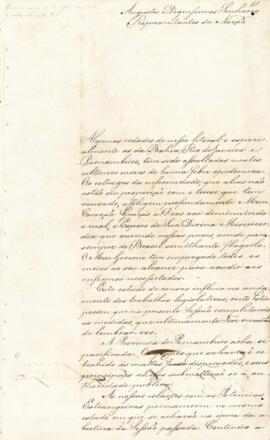 Augustos e Dignissimos Senhores
Representantes da Nação
Algumas cidades do nosso litoral e especi
almente as da Bahia, Rio de Janeiro e
Pernambuco, tem sido assaltadas nestes
ultimos mezes de huma febre epidemica.
Os estragos da enfermidade, que alias não
estão em proporção com o terror que tem
causado, affligem profundamente o Meu
Coração. Graças a Deos vai diminuindo
o mal, e Espero da Sua Divina Misericor
dia que ouvindo nossas preces arrede para
sempre do Brasil similhante flagello.
O Meu Governo tem empregado todos os
meios ao seu alcance para acudir aos
enfermos necessitados.
Este estado de cousas influio no anda
mento dos trabalhos legislativos;
que na presente Sessão completareis
as medidas, que ultimamente Tive occasião
de lembrar-vos.
A Provincia de Pernambuco acha-se
pacificada.
ás mattas
submetter-se á au
thoridade publica.
As nossas relações com as Potencias
Estrangeiras permanecem no mesmo
estado em que se achavão na epoca da a
bertura da Sessão passada. Continúa a